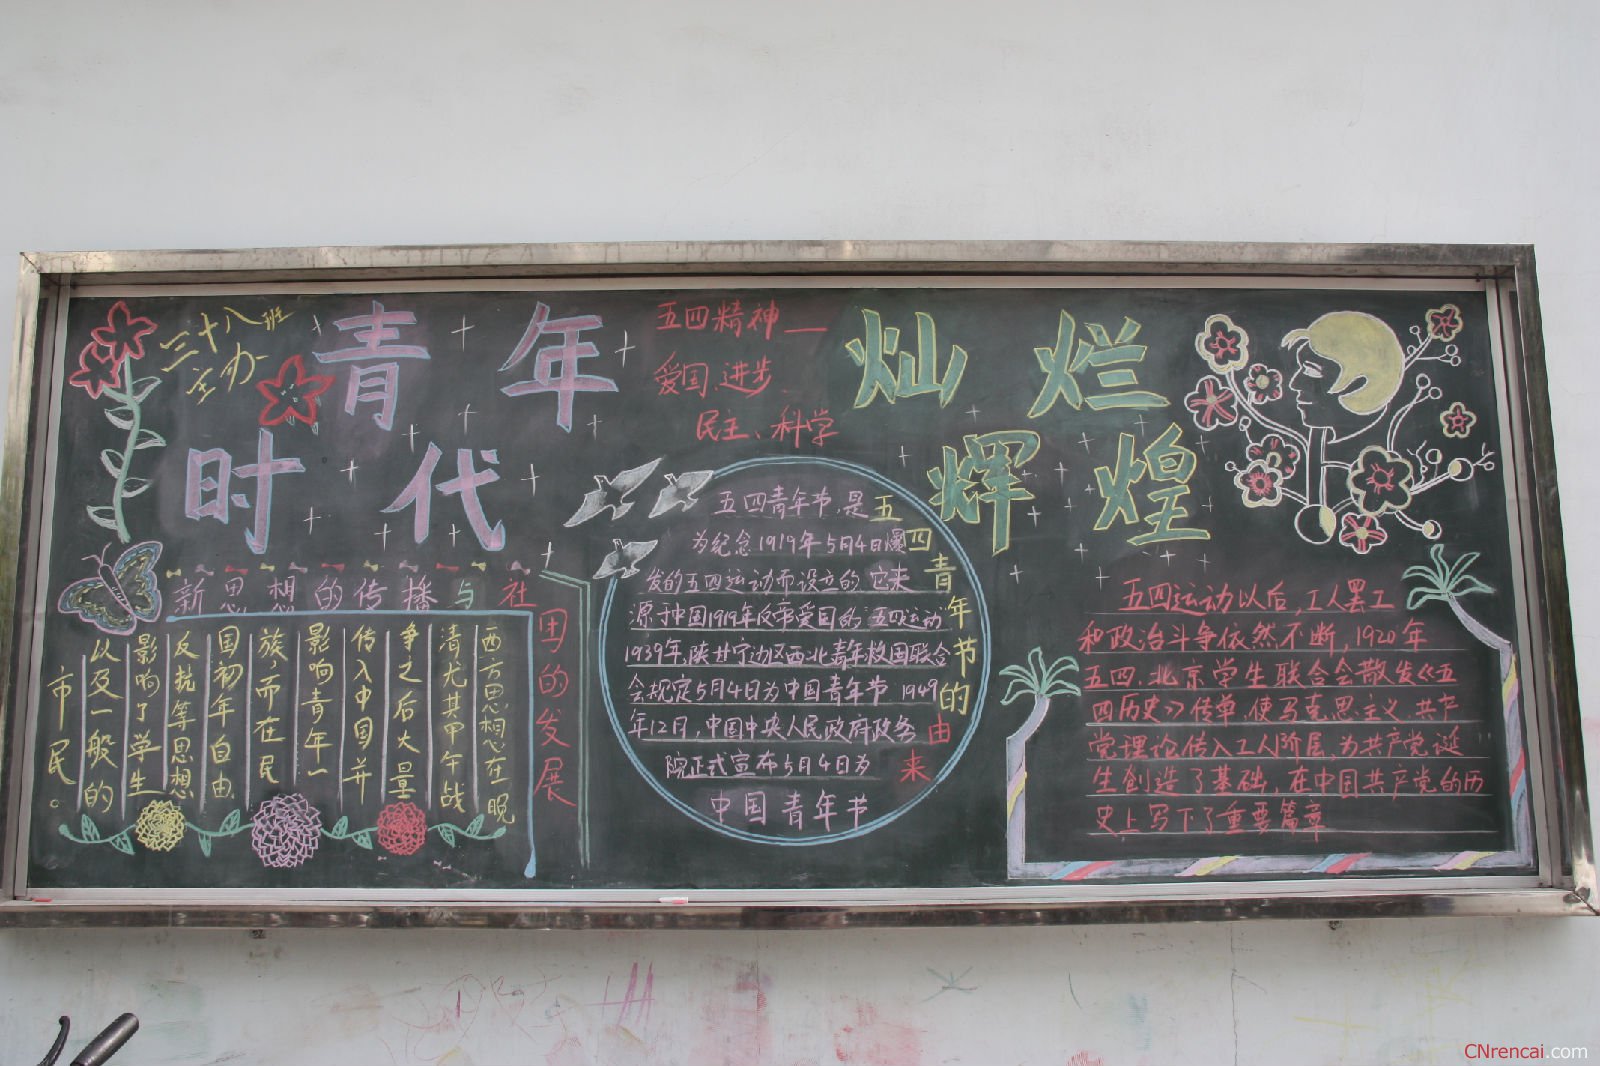 三十八班
主办
青年
时代
五四精神——
爱国、进步、
民主、科学
灿烂
辉煌
新思想的传播与社团的发展
西方思想在晚
清尤其甲午战
争之后大量
传入中国并
影响青年一
族，而在民
国初年自由、
反抗等思想
影响了学生
以及一般的
市民。
五四青年节的由来
五四青年节，是
为纪念1919年5月4日爆
发的五四运动而设立的。它来
源于中国1919年反帝爱国的"五四运动"
1939年，陕甘宁边区西北青年救国联合
会规定5月4日为中国青年节 1949
年12月，中国中央人民政府政务
院正式宣布5月4日为
中国青年节
五四运动以后，工人罢工
和政治斗争依然不断，1920年
五四，北京学生联合会散发《五
四历史》传单，使马克思主义、共产
党理论传入工人阶层，为共产党诞
生创造了基础，在中国共产党的历
史上写下了重要篇章
CNrencai.com